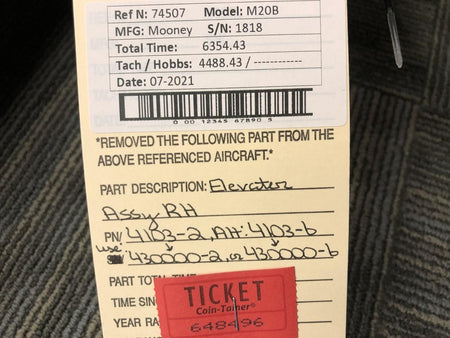 Ref N: 74507 Model: M20B
MFG: Mooney S/N: 1818
Total Time: 6354.43
Tach / Hobbs: 4488.43 / ------------
Date: 07-2021
0 00 12345 67890 5
*REMOVED THE FOLLOWING PART FROM THE
ABOVE REFERENCED AIRCRAFT.*
PART DESCRIPTION: Elevator
Assy RH
PN/ 4103-2, Alt: 4103-6
use 430000-2, or 430000-6
PART TOTAL TIME
TIME SIN
YEAR RA
TICKET
Coin-Tainer®
648496